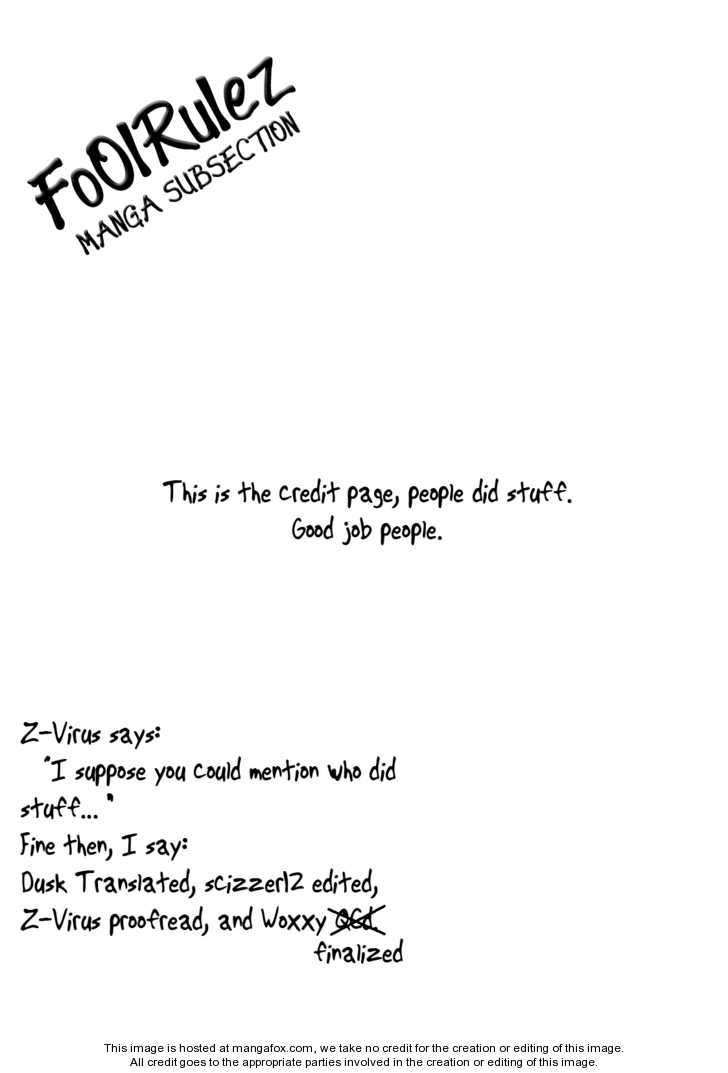 FoOlRulez
MANGA SUBSECTION
This is the credit page, people did stuff.
Good job people.
Z-Virus says:
"I suppose you could mention who did
stuff... "
Fine then, I say:
Dusk Translated, scizzer12 edited,
Z-Virus proofread, and Woxxy QCd.
finalized
This image is hosted at mangafox.com, we take no credit for the creation or editing of this image.
All credit goes to the appropriate parties involved in the creation or editing of this image.